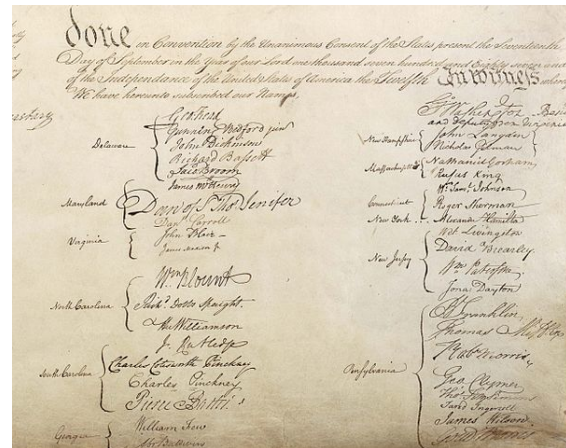 done in Convention by the Unanimous Consent of the States present the Seventeenth
Day of September in the Year of our Lord one thousand seven hundred and Eighty seven and
of the Independance of the United States of America the Twelfth In Witness
We have hereunto subscribed our Names,
Delaware
Geo: Read
Gunning Bedford jun
John Dickinson
Richard Bassett
Jaco: Broom
Maryland
James McHenry
Dan of St Thos Jenifer
Danl Carroll
Virginia
John Blair
James Madison Jr
North Carolina
Wm Blount
Richd Dobbs Spaight.
Hu Williamson
South Carolina
J. Rutledge
Charles Cotesworth Pinckney
Charles Pinckney
Pierce Butler
Georgia
William Few
Abr Baldwin
Go Washington Presidt
and deputy from Virginia
New Hampshire
John Langdon
Nicholas Gilman
Massachusetts
Nathaniel Gorham
Rufus King
Connecticut
Wm Saml Johnson
Roger Sherman
New York
Alexander Hamilton
New Jersey
Wil: Livingston
David Brearley
Wm Paterson
Jona: Dayton
Pensylvania
B Franklin
Thomas Mifflin
Robt Morris
Geo. Clymer
Thos FitzSimons
Jared Ingersoll
James Wilson
Gouv Morris